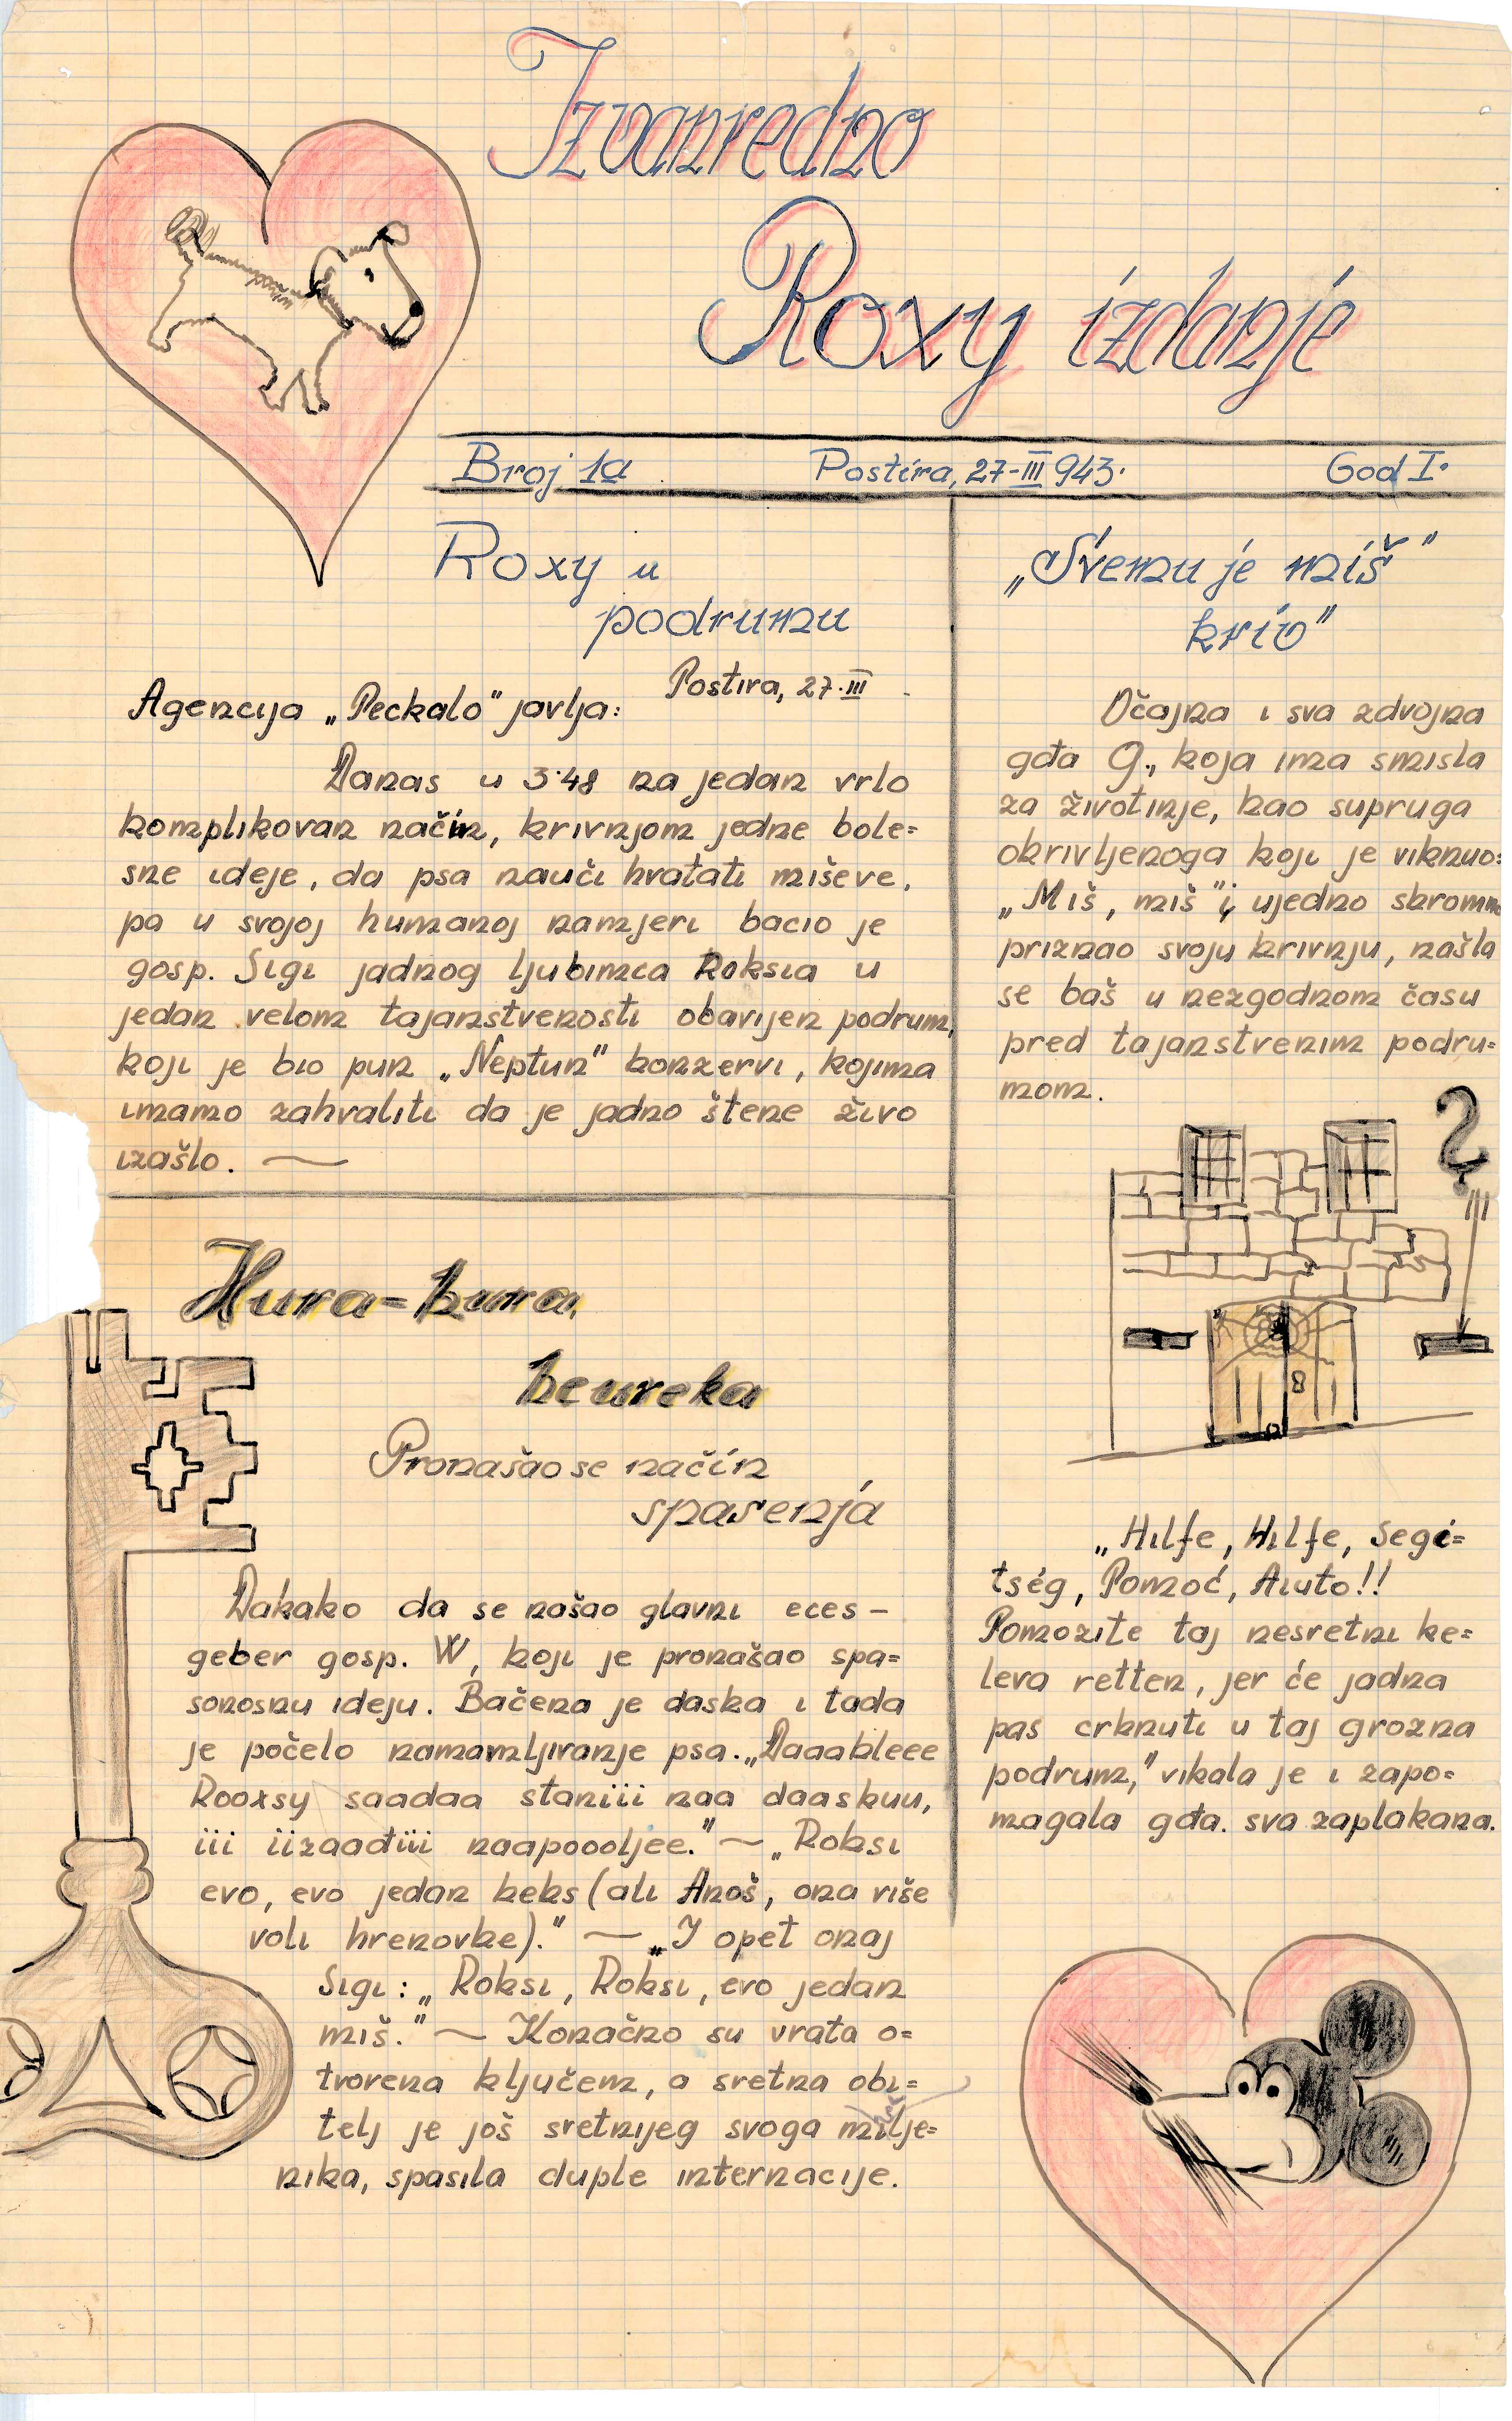 Izvanredno
Roxy izdanje
Broj 1a Postira, 27-III 943. God I.
Roxy u
podrumu
Postira, 27.III
Agencija „Peckalo" javlja:
Danas u 3·48 na jedan vrlo
komplikovan način, krivnjom jedne bole=
sne ideje, da psa nauči hvatati miševe,
pa u svojoj humanoj namjeri bacio je
gosp. Sigi jadnog ljubimca Roksia u
jedan velom tajanstvenosti obavijen podrum,
koji je bio pun „Neptun" konzervi, kojima
imamo zahvaliti da je jadno štene živo
izašlo. —
Hura-hura,
heureka
Pronašao se način
spasenja
Dakako da se našao glavni eces-
geber gosp. W, koji je pronašao spa=
sonosnu ideju. Bačena je daska i tada
je počelo namamljivanje psa. „Daaableee
Rooxsy saadaa staniii naa daaskuu,
iii iizaađiii naapoooljee." — „Roksi
evo, evo jedan keks (ali Anoš, ona više
voli hrenovke)." — „I opet onaj
Sigi: „Roksi, Roksi, evo jedan
miš." — Konačno su vrata o=
tvorena ključem, a sretna obi=
telj je još sretnijeg svoga milje=
nika, spasila duple internacije.
„Svemu je miš"
kriv"
Očajna i sva zdvojna
gđa G., koja ima smisla
za životinje, kao supruga
okrivljenoga koji je viknuo:
„Miš, miš" i, ujedno skromno
priznao svoju krivnju, našla
se baš u nezgodnom času
pred tajanstvenim podru=
mom.
?
„Hilfe, Hilfe, Segi=
tség, Pomoć, Aiuto!!
Pomozite taj nesretni ke=
leva retten, jer će jadna
pas crknuti u taj grozna
podrum," vikala je i zapo=
magala gđa. sva zaplakana.